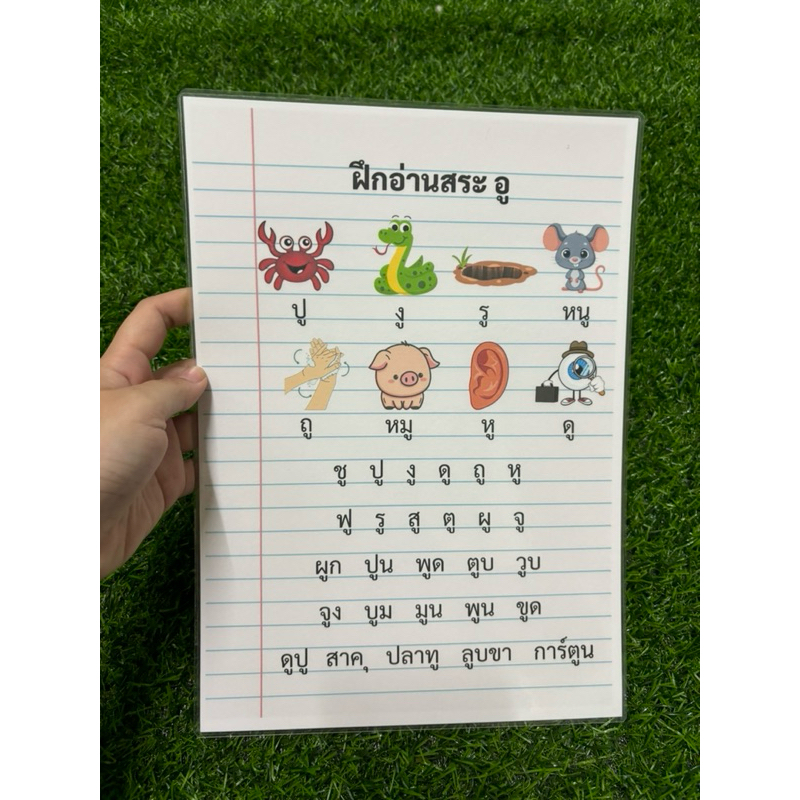 ฝึกอ่านสระ อู
ปู งู รู หนู
ถู หมู หู ดู
ชู ปู งู ดู ถู หู
ฟู รู สู ตู ผู จู
ผูก ปูน พูด ตูบ วูบ
จูง บูม มูน พูน ขูด
ดูปู สาคุ ปลาทู ลูบขา การ์ตูน